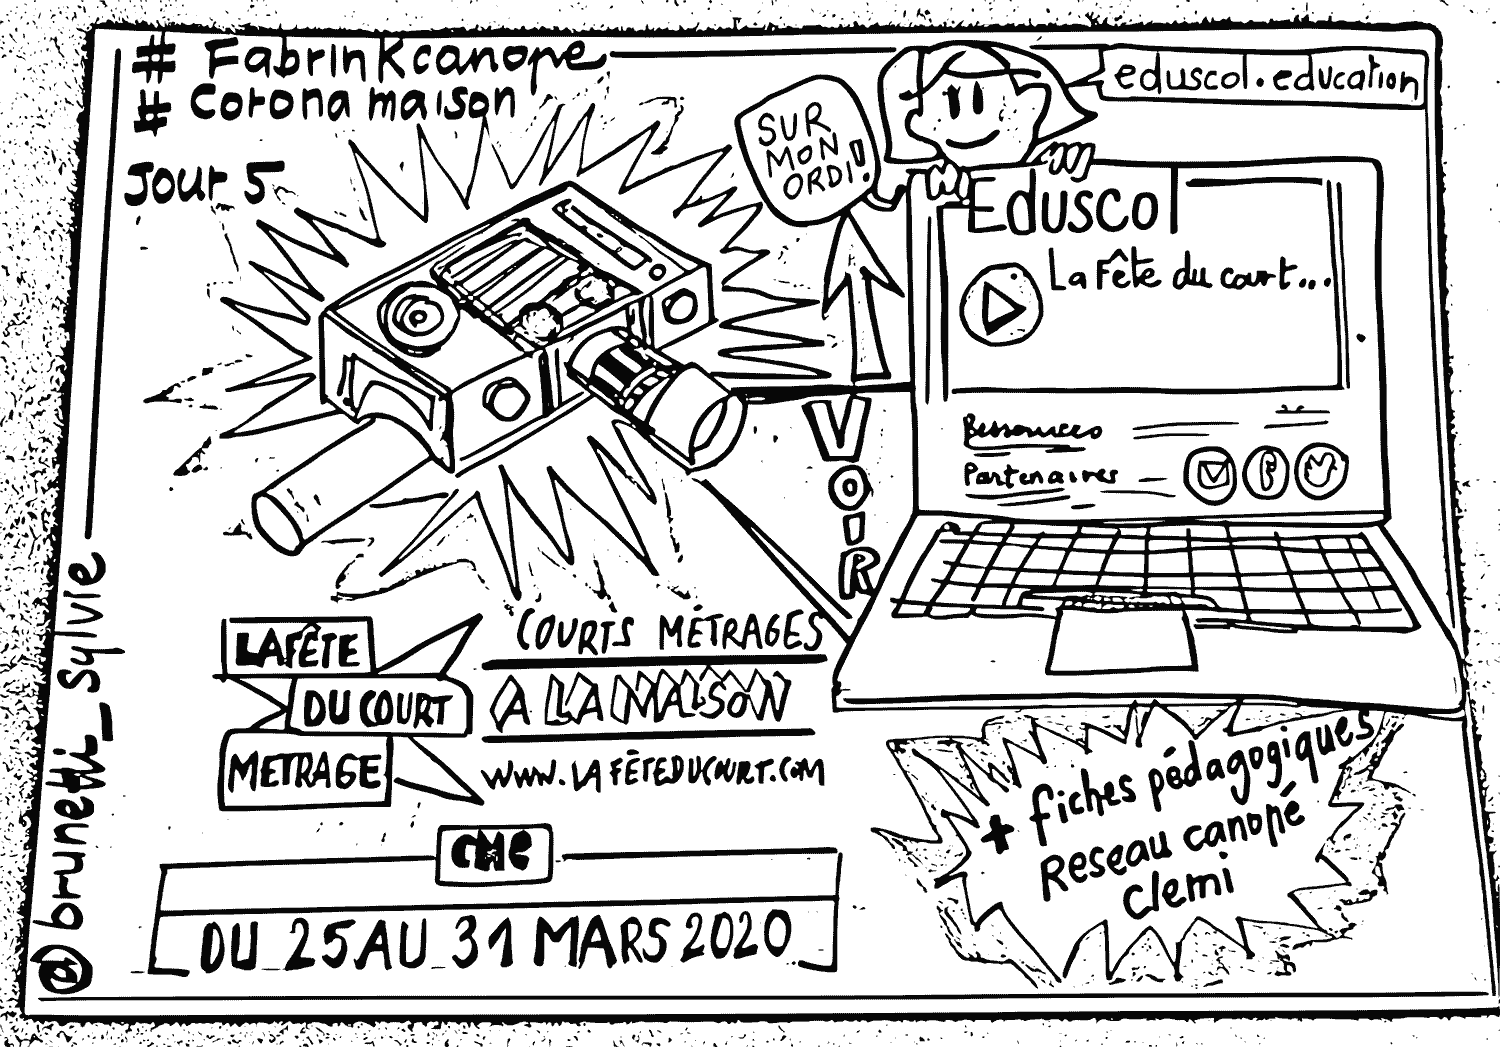 # FabrinKcanope
# Corona maison
Jour 5
SUR
MON
ORDI!
eduscol.education
Eduscol
La Fête du court...
Ressources
Partenaires
VOIR
@brunetti_sylvie
LA FÊTE
DU COURT
METRAGE
COURTS MÉTRAGES
A LA MAISON
WWW.LAFÊTEDUCOURT.COM
CMC
DU 25 AU 31 MARS 2020
+ fiches pédagogiques
Reseau canopé
Clemi